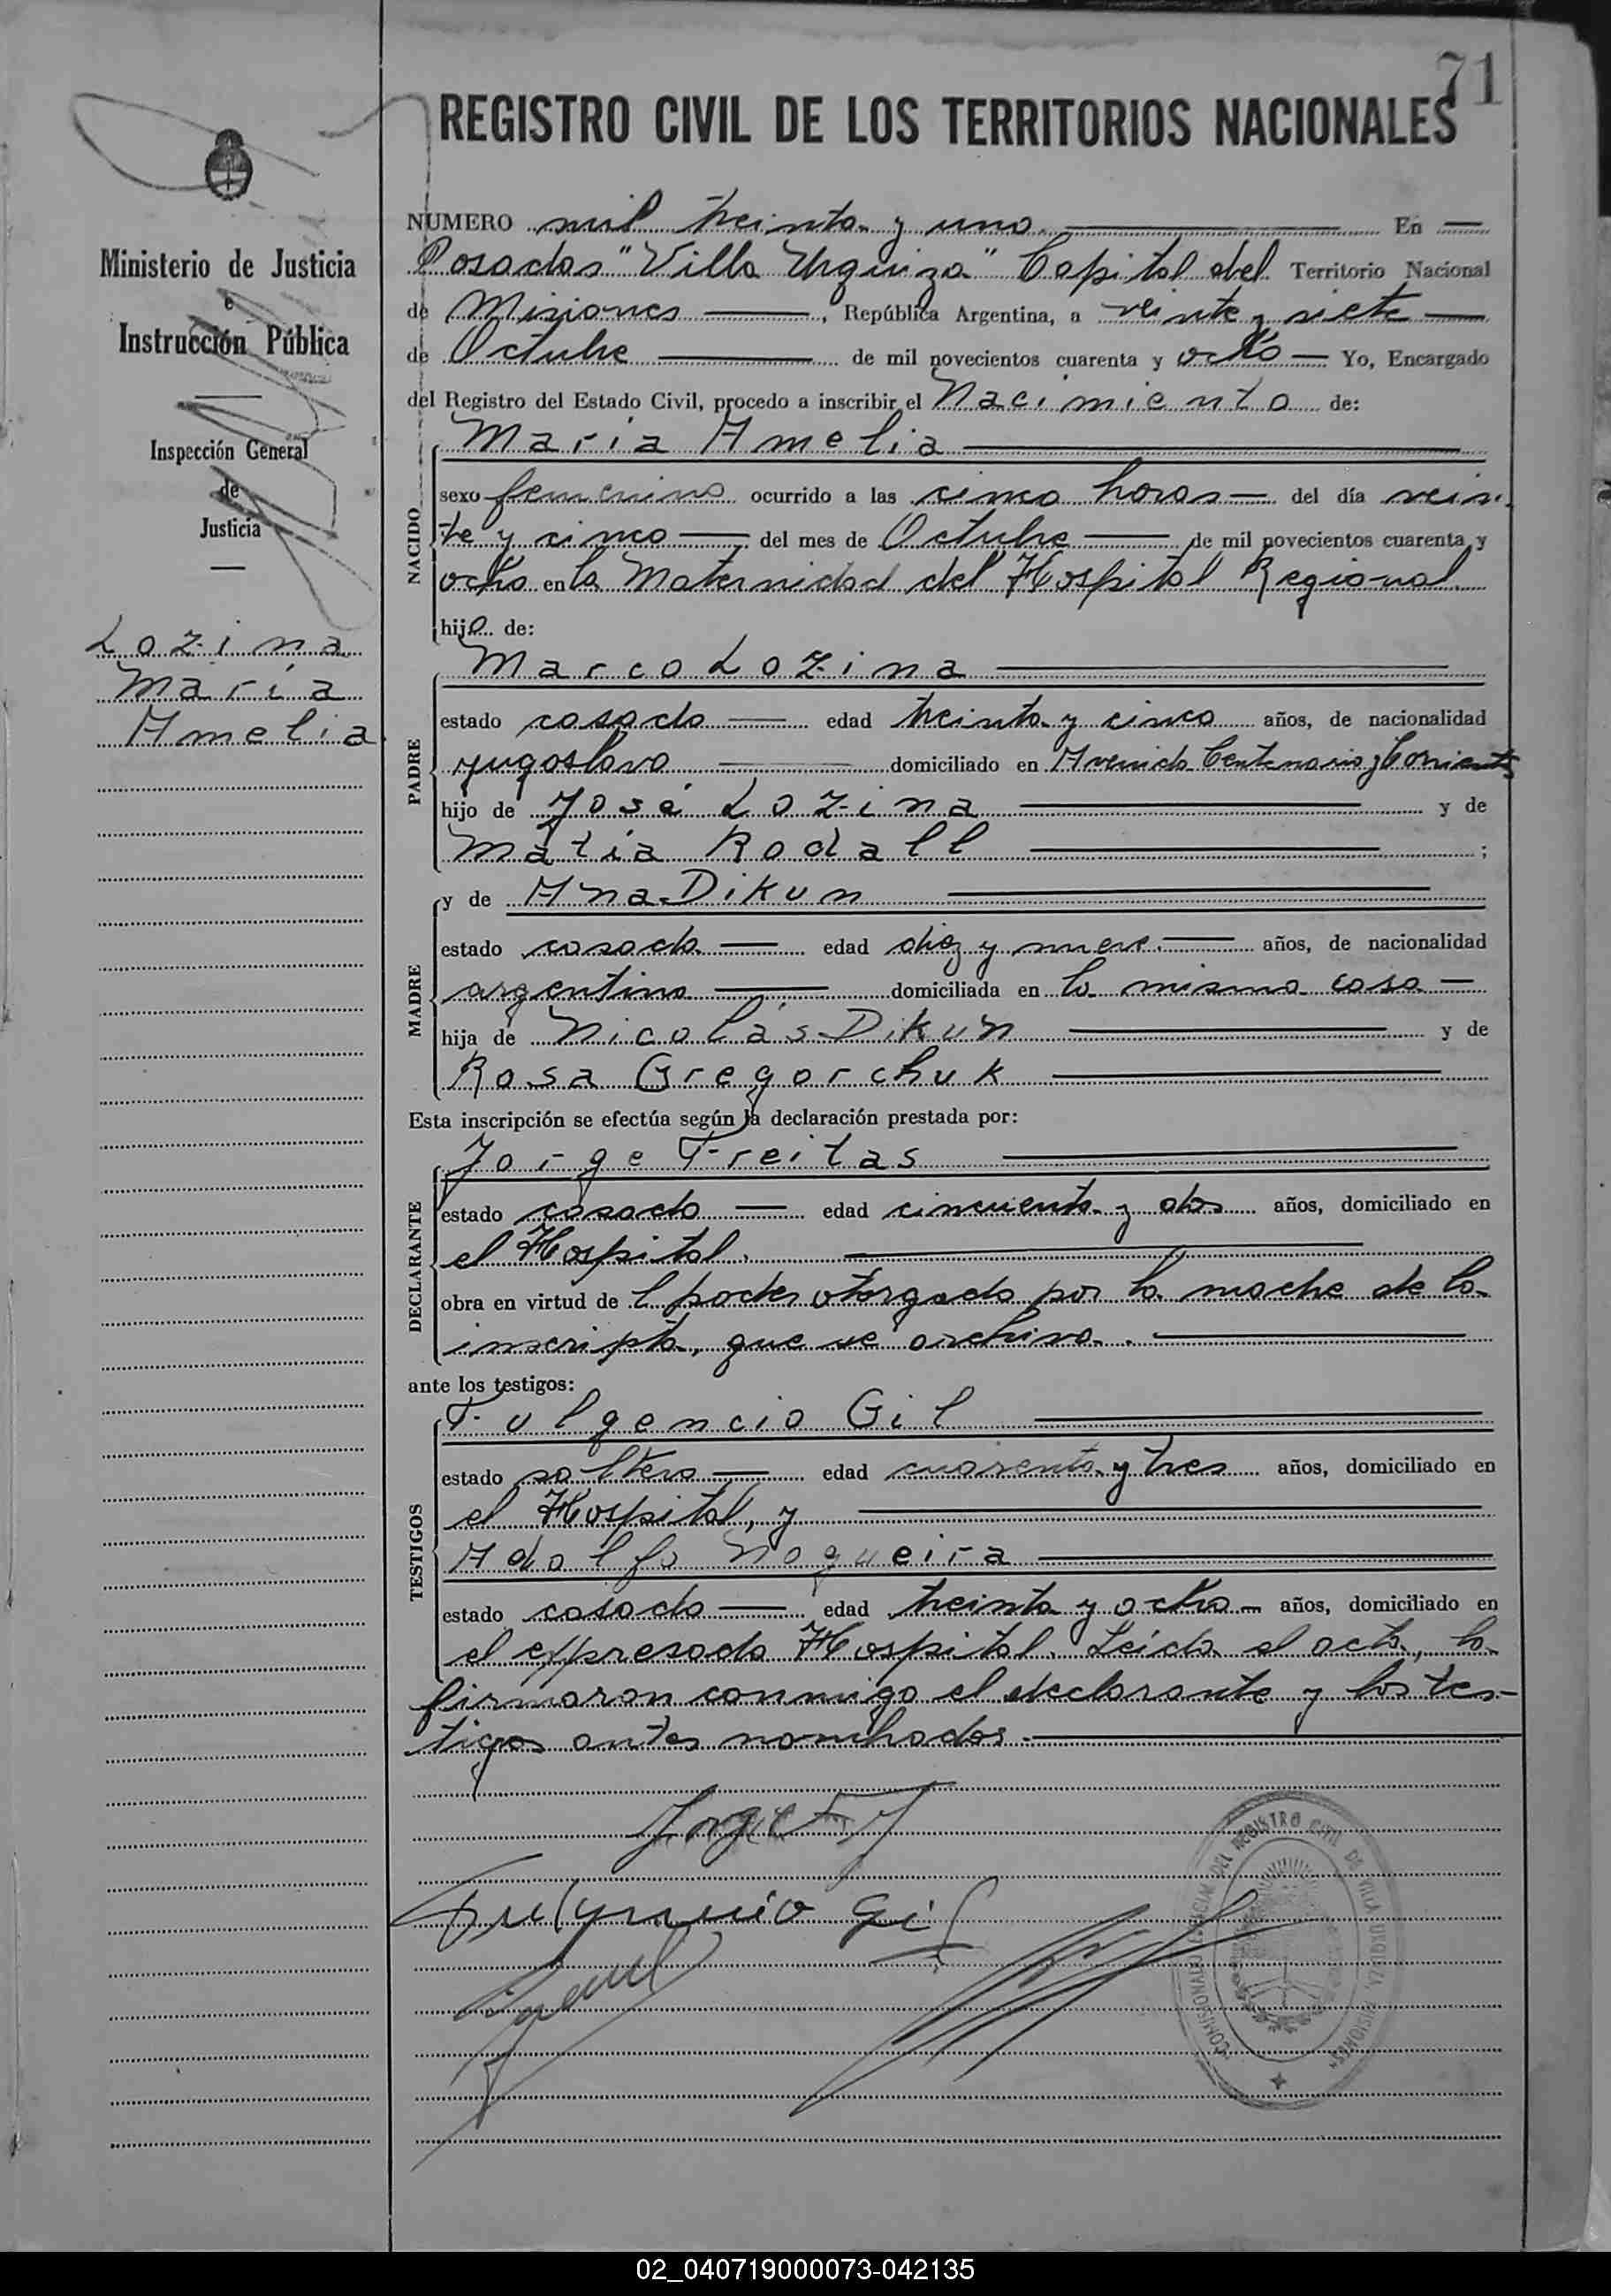 71
REGISTRO CIVIL DE LOS TERRITORIOS NACIONALES
Ministerio de Justicia
e
Instrucción Pública
Inspección General
de
Justicia
Lozina
María
Amelia
NUMERO mil treinta y uno En
Posadas "Villa Urquiza" Capital del Territorio Nacional
de Misiones, República Argentina, a veinte y siete
de Octubre de mil novecientos cuarenta y ocho Yo, Encargado
del Registro del Estado Civil, procedo a inscribir el Nacimiento de:
NACIDO
María Amelia
sexo femenino ocurrido a las cinco horas del día vein
te y cinco del mes de Octubre de mil novecientos cuarenta y
ocho en la Maternidad del Hospital Regional
hija de:
PADRE
Marco Lozina
estado casado edad treinta y cinco años, de nacionalidad
yugoslava domiciliado en Avenida Centenario y Corrientes
hijo de José Lozina y de
Matia Rodall ;
MADRE
y de Ana Dikun
estado casada edad diez y nueve años, de nacionalidad
argentina domiciliada en la misma casa
hija de Nicolás Dikun y de
Rosa Gregorchuk
Esta inscripción se efectúa según la declaración prestada por:
DECLARANTE
Jorge Freitas
estado casado edad cincuenta y dos años, domiciliado en
el Hospital.
obra en virtud de l poder otorgado por la madre de la
inscripta, que se archiva.
ante los testigos:
TESTIGOS
Fulgencio Gil
estado soltero edad cuarenta y tres años, domiciliado en
el Hospital, y
Adolfo Nogueira
estado casado edad treinta y ocho años, domiciliado en
el expresado Hospital. Leída el acta, la
firmaron conmigo el declarante y los tes-
tigos antes nombrados.
Jorge
Fulgencio Gil
DEL REGISTRO CIVIL DE VILLA URQUIZA MISIONES
02_040719000073-042135